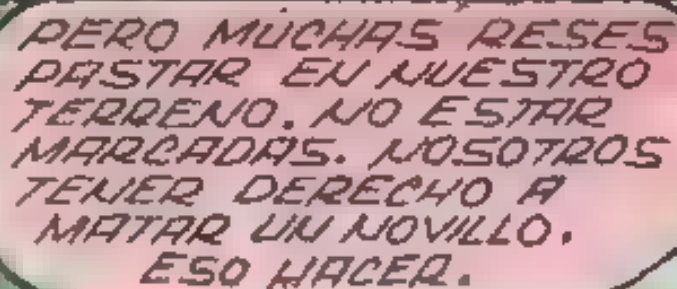 PERO MUCHAS RESES
PASTAR EN NUESTRO
TERRENO. NO ESTAR
MARCADAS. NOSOTROS
TENER DERECHO A
MATAR UN NOVILLO.
ESO HACER.